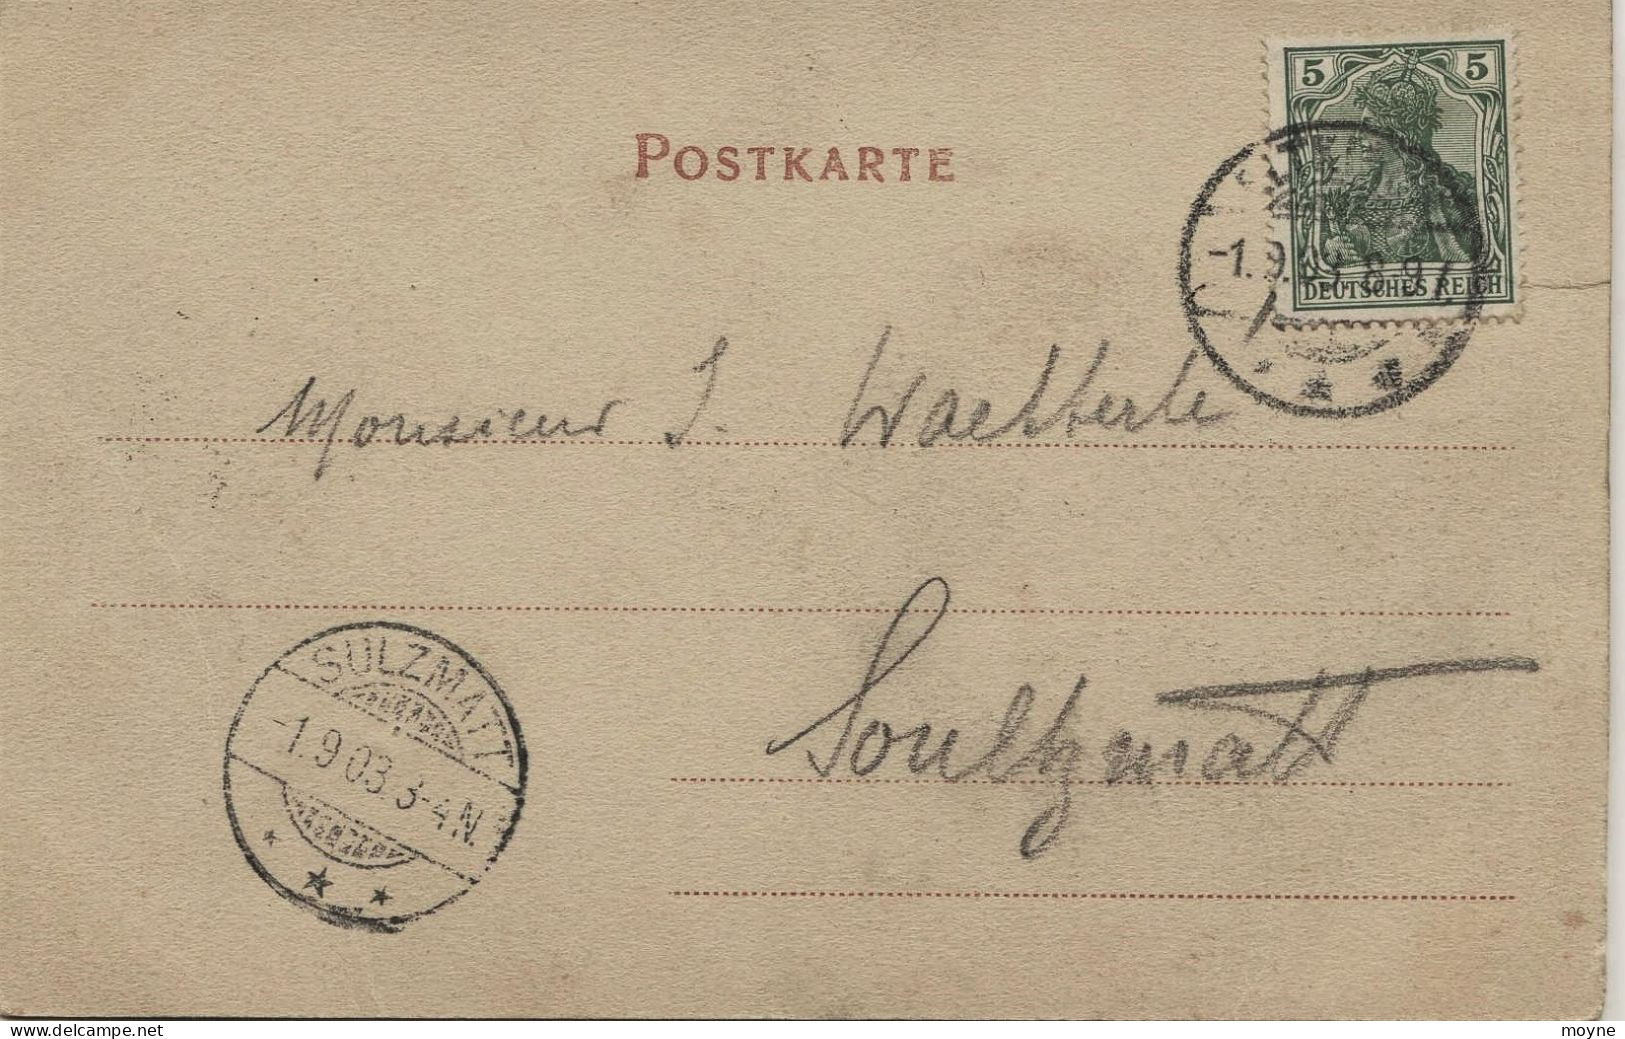 5 5
POSTKARTE
-1.9. 8-9V.
DEUTSCHES REICH
Monsieur J. Waelterle
Soultzmatt
SULZMATT
-1.9.03.3-4N.
delcampe.net
moyne